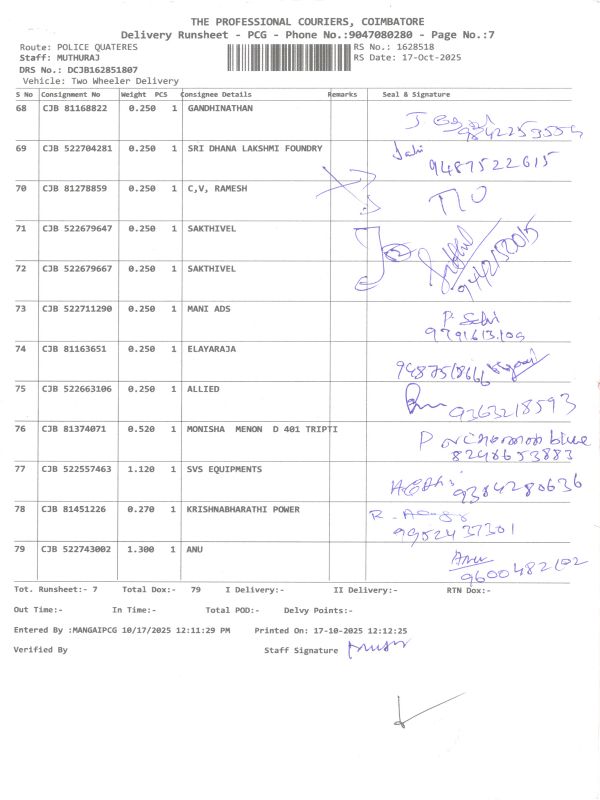 THE PROFESSIONAL COURIERS, COIMBATORE
Delivery Runsheet - PCG - Phone No.:9047080280 - Page No.:7
Route: POLICE QUATERES RS No.: 1628518
Staff: MUTHURAJ RS Date: 17-Oct-2025
DRS No.: DCJB162851807
Vehicle: Two Wheeler Delivery
S No Consignment No Weight PCS Consignee Details Remarks Seal & Signature
68 CJB 81168822 0.250 1 GANDHINATHAN
69 CJB 522704281 0.250 1 SRI DHANA LAKSHMI FOUNDRY
9487522615
70 CJB 81278859 0.250 1 C,V, RAMESH
71 CJB 522679647 0.250 1 SAKTHIVEL
72 CJB 522679667 0.250 1 SAKTHIVEL
73 CJB 522711290 0.250 1 MANI ADS
74 CJB 81163651 0.250 1 ELAYARAJA
75 CJB 522663106 0.250 1 ALLIED
9363218593
76 CJB 81374071 0.520 1 MONISHA MENON D 401 TRIPTI
8248653883
77 CJB 522557463 1.120 1 SVS EQUIPMENTS
9384280636
78 CJB 81451226 0.270 1 KRISHNABHARATHI POWER
9952437301
79 CJB 522743002 1.300 1 ANU
Anu
9600482102
Tot. Runsheet:- 7 Total Dox:- 79 I Delivery:- II Delivery:- RTN Dox:-
Out Time:- In Time:- Total POD:- Delvy Points:-
Entered By :MANGAIPCG 10/17/2025 12:11:29 PM Printed On: 17-10-2025 12:12:25
Verified By Staff Signature